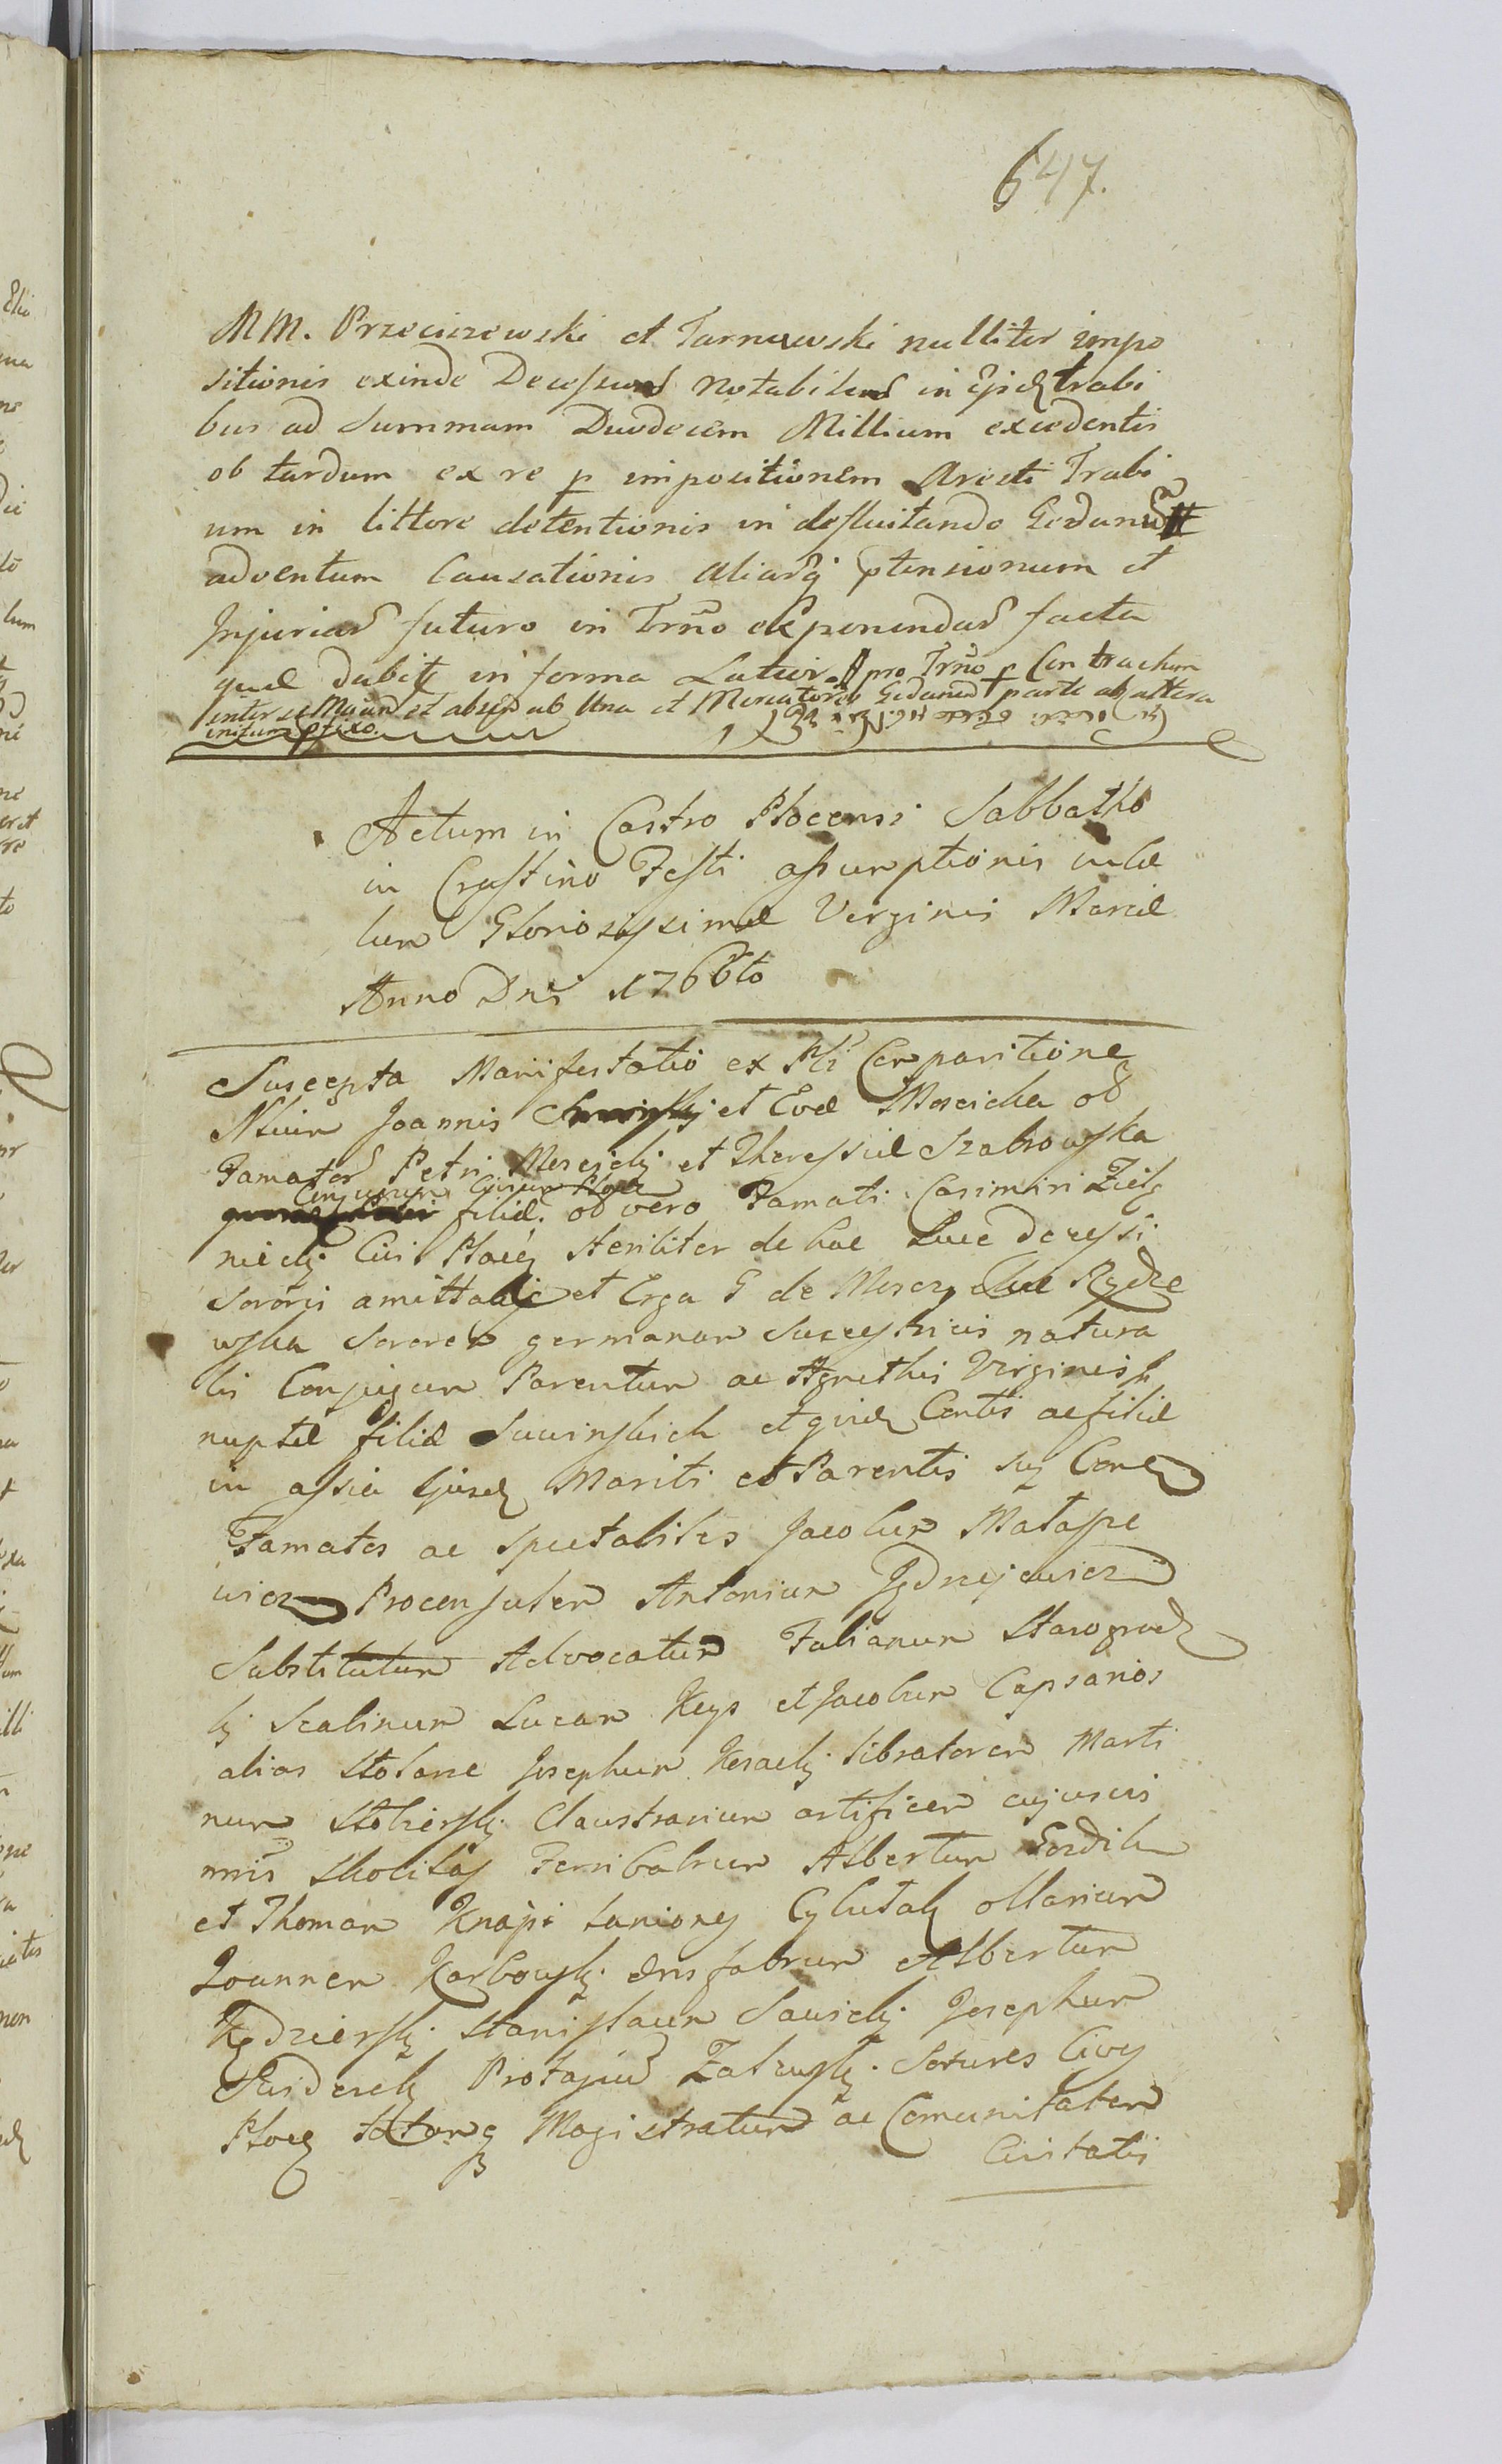 647.
MM. Przeciszewski et Tarnowski nulliter impo
sitionis exinde Decessus notabilis in ejsd trabi
bus ad Summam Duodecem Millium excedentis
ob tardum ex re p impositionem Aresti Trabi
um in littore detentionis in defluitando Gedanu
adventum Causationis aliarq ptensionum et
Injurias futuro in Trno exponendas facta
quae dabit in forma Latiori pro Trno p Contractum
inter se Maand et absed ab Una et Mercatores Gedanen parte ab altera
initum pfixo.
Actum in Castro Plocensi Sabbatho
in Crastino Festi assumptionis in
lum Gloriosissimae Virginis Mariae
Anno Dni 1766to
Suscepta Manifestatio ex Pti Comparitione
Joannis et Evae Moscicka ob
Famator Petri Moscicky et Theressiae Szabrowska
Conjugum Civium Ploce
filiae. ob vero Famati Casimiri Zieli
nicky Civi Ploceñ steriliter de hac Luce decessi
Sororis amittalis et Erga G de Mosczy Rydze
wska Sororem germanam Successricis natura
lis Conjugum Parentum ac Agnethis Virginis
nuptae filiae Suwinskich et quid Contis ac filiae
in assia Ejusd Mariti et Parentis suj Con
Famatos ac spectabiles Jacobum Matasze
wicz Proconsulem Antonium Jędrzejewicz
Substitutum Advocatum Fabianum Starogrodz
ky Scabinum Lucam Keys et Jacobum Capsarios
alias Stolarze Josephum Kesacky libratorem Marti
num Stolzersky Claustrarium artificem cujuscis
nnis Skocilas Ferrifabrum Albertum Gozdik
et Thomam Knapi laniones Cylutaly ollarium
Joannem Karbowsky Ensfabrum Albertum
Kędziersky Stanislaum Sawicky Josephum
Swiderek Protasium Zalewsky Sotures Cives
Ploceñ totumq Magistratum ac Comunitatem
Civitatis